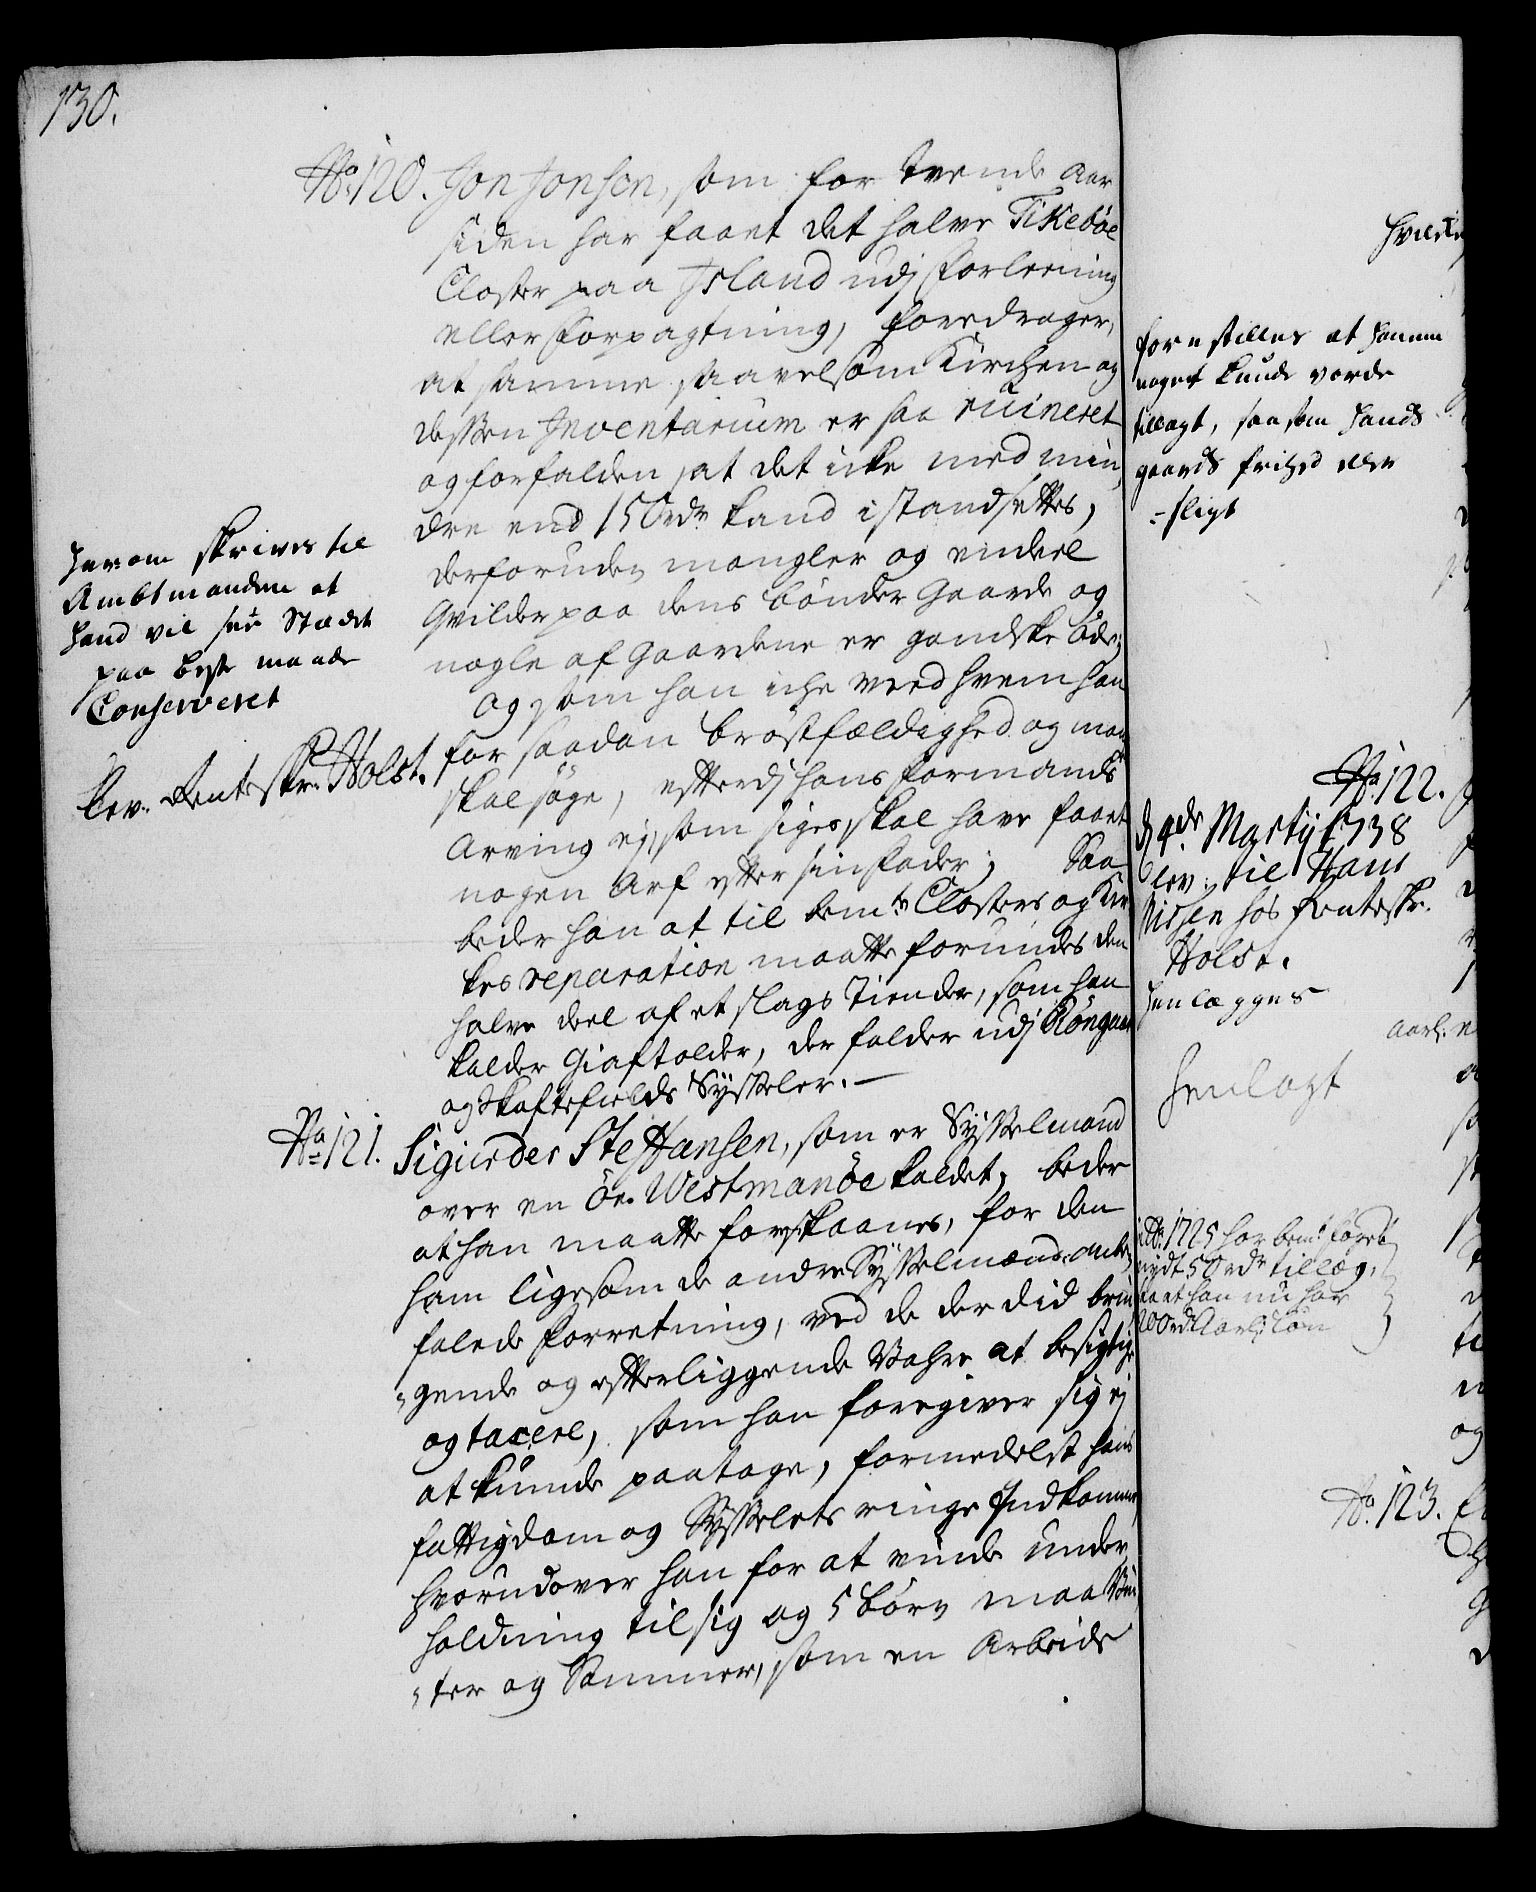 130.
No. 120. Jon Jonsen, som for trende Aar
siden har faaet det halve Tikeböe
Closter paa Island udj forleening
eller Forpagtning, foredrager,
at samme saavelsom Kirchen og
dessen Inventarium er saa ruineret
og forfalden, at det icke med min
dre end 150 rdr kand istandsættes,
derforuden mangler og endeel
Qvilder paa dens bönder Gaarde og
nogle af Gaardene er gandske öde;
og som han iche veed hvem han
for saadan bröstfældighed og man
skal söge, efterdj hans formands
Arving ej, som siges, skal have faaet
nogen Arf efter sin Fader; Saa
beder han at til bemte Closters og Kir
kes reparation maatte forundes den
halve deel af et slags Tiender, som han
kalder Giaftolder, der falder udj
og Skaftefields Sysseler. —
Herom skrives til
Ambtmanden at
hand vil see Stædet
paa beste maade
Conserveret
Lev. Renteskr. Holst.
No. 121. Sigurder Steffansen, som er Sysselmand
over en Öe Westmanöe kaldet, beder
at han maatte forskaanes, for den
ham ligesom de andre Sysselmænd anbe
falede Forretning, ved de der did brin
gende og efterliggende Vahre at besigtige
og taxere, som han foregiver sig ej
at kunde paatage, formedelst hans
fattigdom og Sysselets ringe Indkomme,
hvorudover han for at vinde under
holdning til sig og 5 börn maa Vin
ter og Sommer, som en Arbeids
forestilles at hannem
noget kunde vorde
tillagt, saasom hands
gaards frihed eller
sligt
No. 122.
d 4de Martij 1738
lev. til Hans
Nissen hos Renteskr.
Holst.
henlægges
henlagt
Ao. 1725 har bemte
nydt 50 rdr tillæg,
saa at han nu har
200 rdr Aarl. Lön
No. 123.